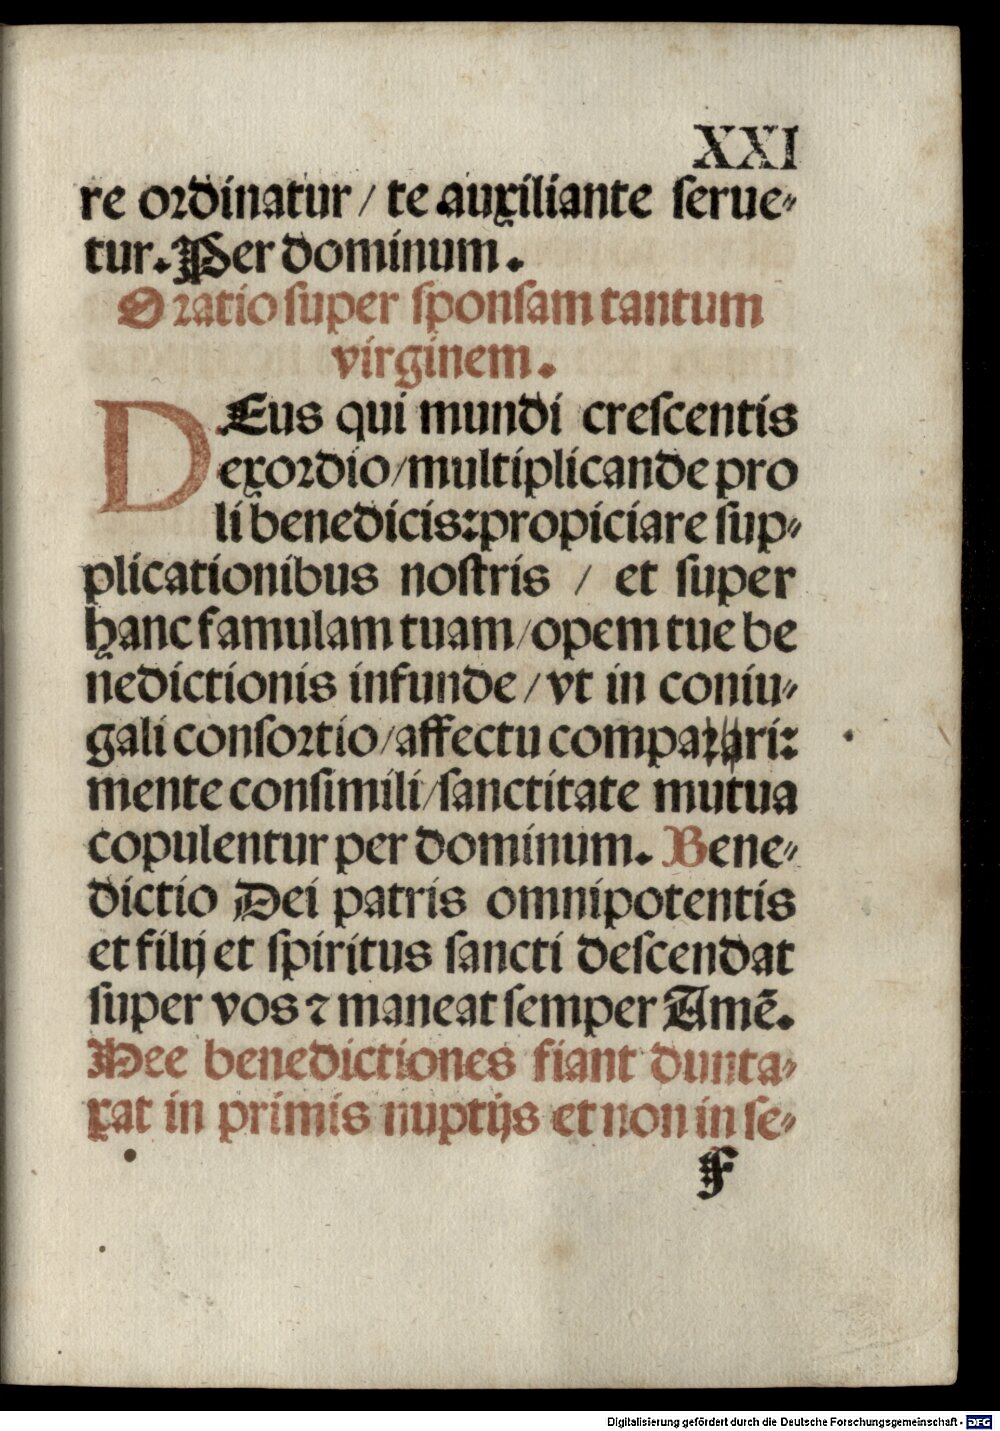 XXI
re ordinatur / te auxiliante serue-
tur. Per dominum.
Oratio super sponsam tantum
virginem.
DEus qui mundi crescentis
exordio/multiplicande pro
li benedicis:propiciare sup-
plicationibus nostris / et super
hanc famulam tuam/opem tue be
nedictionis infunde/vt in coniu-
gali consortio/affectu compa ri:
mente consimili/sanctitate mutua
copulentur per dominum. Bene-
dictio Dei patris omnipotentis
et filij et spiritus sancti descendat
super vos ⁊ maneat semper Amē.
Hee benedictiones fiant dunta-
xat in primis nuptijs et non in se-
F
Digitalisierung gefördert durch die Deutsche Forschungsgemeinschaft - DFG